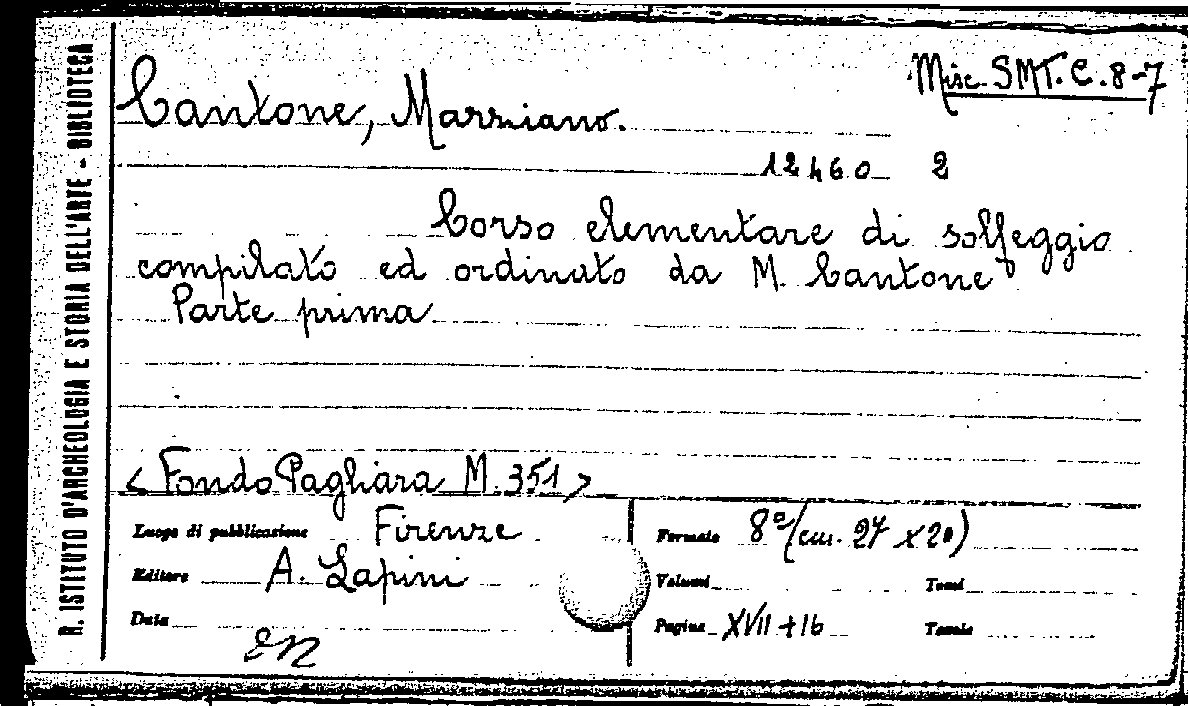 R. ISTITUTO D'ARCHEOLOGIA E STORIA DELL'ARTE - BIBLIOTECA
Misc. SMT. C. 8-7
Cantone, Marziano.
12460 2
Corso elementare di solfeggio
compilato ed ordinato da M. Cantone
Parte prima
<Fondo Pagliara M. 351>
Luogo di pubblicazione Firenze
Editore A. Lapini
Data
Formato 8º (cm. 27 x 20)
Volumi Tomi
Pagine XVII + 16 Tavole